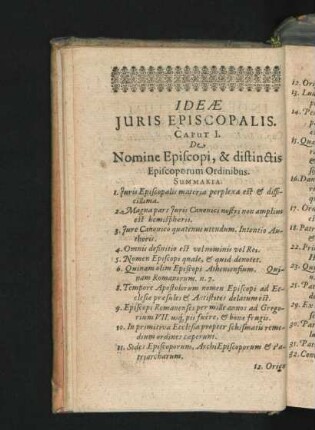 IDEÆ
JURIS EPISCOPALIS.
CAPUT I.
De
Nomine Episcopi, & distinctis
Episcoporum Ordinibus.
SUMMARIA.
1. Juris Episcopalis materia perplexa est & diffi-
cillima.
2. Magna pars Juris Canonici nostri non amplius
est hemisphærii.
3. Jure Canonico quatenus utendum. Intentio Au-
thoris.
4. Omnis definitio est vel nominis vel Rei.
5. Nomen Episcopi quale, & quid denotet.
6. Quinam olim Episcopi Atheniensium. Qui-
nam Romanorum. n. 7.
8. Tempore Apostolorum nomen Episcopi ad Ec-
clesiæ præsules & Antistites delatum est.
9. Episcopi Romanenses per mille annos ad Grego-
rium VII. usq; pii fuêre, & bonæ frugis.
10. In primitiva Ecclesia propter schismatis reme-
dium ordines cœperunt.
11. Sedes Episcoporum, ArchiEpiscoporum & Pa-
triarcharum.
12. Origo